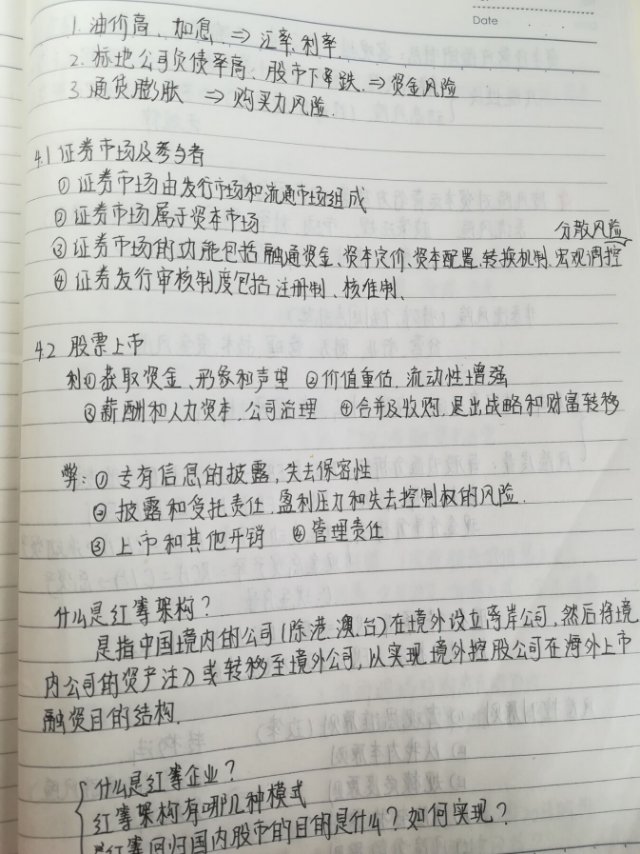 Date
1. 油价高、加息 ⇒ 汇率、利率
2. 标地公司负债率高、股市下降跌 ⇒ 资金风险
3. 通货膨胀 ⇒ 购买力风险.
4.1 证券市场及参与者
① 证券市场由发行市场和流通市场组成
② 证券市场属于资本市场
分散风险
③ 证券市场的功能包括融通资金、资本定价、资本配置、转换机制、宏观调控
④ 证券发行审核制度包括注册制、核准制、
4.2 股票上市
利① 获取资金、形象和声望 ② 价值重估、流动性增强
③ 薪酬和人力资本、公司治理 ④ 合并及收购、退出战略和财富转移
弊:① 专有信息的披露,失去保密性
② 披露和受托责任、盈利压力和失去控制权的风险.
③ 上市和其他开销 ④ 管理责任
什么是红筹架构?
是指中国境内的公司(除港、澳、台)在境外设立离岸公司,然后将境
内公司的资产注入或转移至境外公司,以实现境外控股公司在海外上市
融资目的结构.
什么是红筹企业?
红筹架构有哪几种模式
红筹回归国内股市的目的是什么?如何实现?